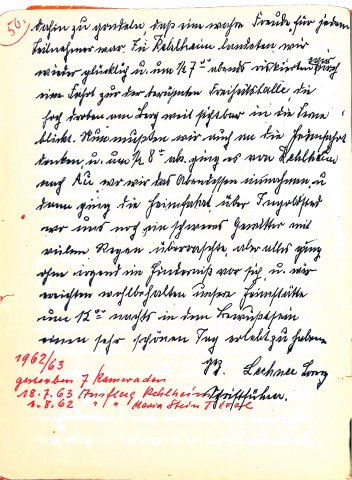 56.
dahin zu gondeln daß eine wahre Freude für jeden
Teilnehmer war. In Kehlheim landeten wir
wieder glücklich u. um ½ 7 Uhr abends riskierten wir noch
eine Fahrt zur der berühmten Freiheitshalle die
hoch droben am Berg weit sichtbar in die Ferne
blickt. Nun mußten wir auch an die Heimfahrt
denken, u. um ½ 8 Uhr ab. ging es von Kehlheim
nach Au wo wir das Abendessen einnahmen, u
dann ging die Heimfahrt über Ingolstadt
wo uns noch ein schweres Gewitter mit
vielem Regen überraschte, aber alles ging
ohne irgend ein Hinderniß vor sich, u. wir
erreichten wohlbehalten unsere Heimstätte
um 12 Uhr nachts in dem Bewußtsein
einen sehr schönen Tag erlebt zu haben
gez. Lechner
Schriftführer.
1962/63
gestorben 7 Kameraden
18.7.63 Ausflug Kehlheim
1.8.62 " " Maria Stein Tirol